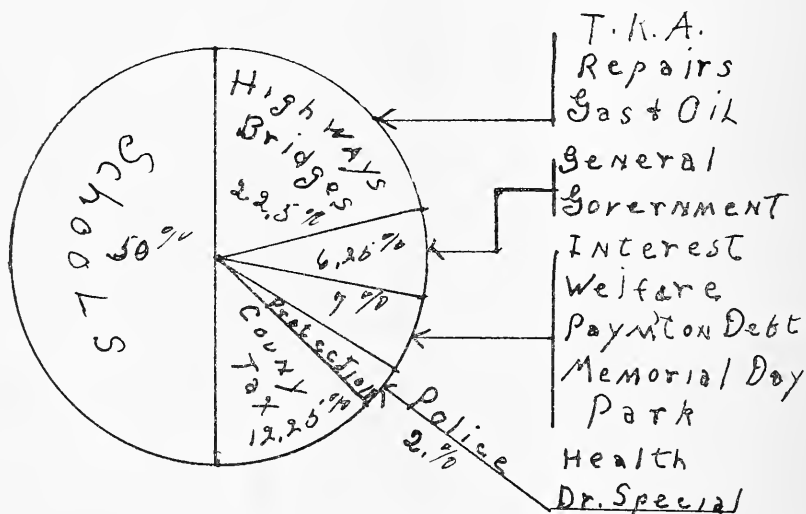 Schools
50%
HighWAys
Bridges
22.5%
6.25%
7%
Protection
County
Tax
12.25%
Police
2.%
T.R.A.
Repairs
Gas & Oil
General
Government
Interest
Welfare
Paym'T on Debt
Memorial Day
Park
Health
Dr. Special